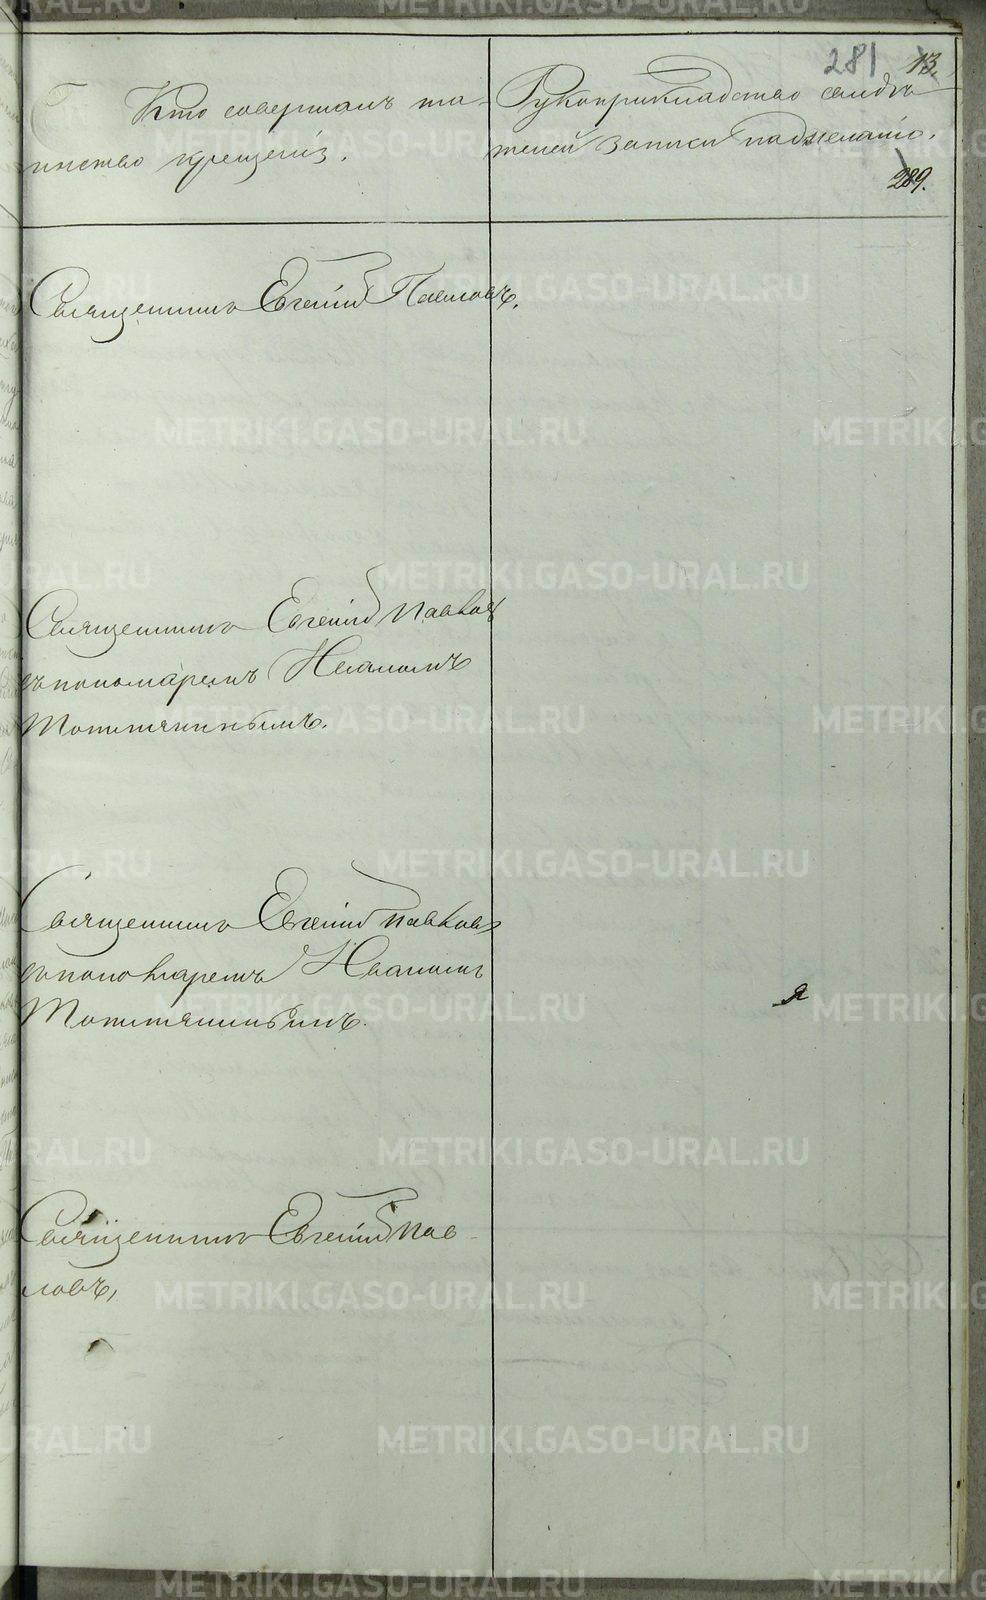 281 13.
Кто совершалъ та-
инство крещенія.
Рукоприкладство свидѣ-
телей записи по желанію.
289.
Священникъ Евгеній Павловъ.
Священникъ Евгеній Павловъ
съ пономаремъ Иваномъ
Топитянинымъ.
Священникъ Евгеній Павловъ
съ пономаремъ Иваномъ
Священникъ Евгеній Пав-
ловъ,
METRIKI.GASO-URAL.RU